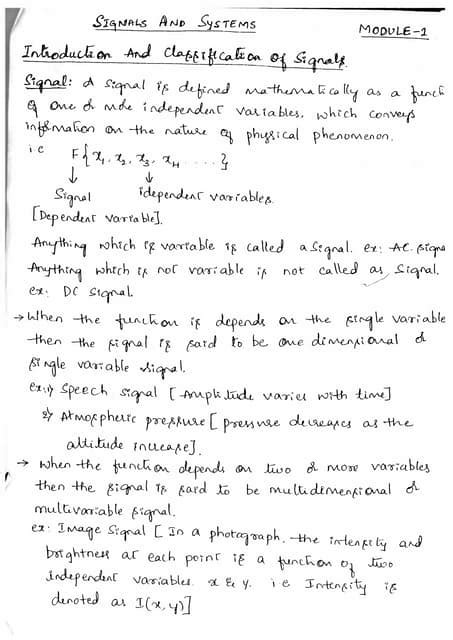 SIGNALS AND SYSTEMS
MODULE-1
Introduction And Classification Of Signals.
Signal: A signal is defined mathematically as a funct
of one or more independent variables, which conveys
information on the nature of physical phenomenon.
i.e F{x1, x2, x3, x4, ....}
Signal idependent variables.
[Dependent variable].
Anything which is variable is called a signal. ex: AC signa
Anything which is not variable is not called as signal.
ex: DC signal.
→ When the function is depends on the single variable
then the signal is said to be one dimensional or
single variable signal.
ex:1) Speech signal [Amplitude varies with time]
2) Atmospheric pressure [pressure decreases as the
altitude increase].
→ When the function depends on two or more variables
then the signal is said to be multidimensional or
multivariable signal.
ex: Image Signal [In a photograph, the intensity and
brightness at each point is a function of two
Independent variables. x & y. i.e Intensity is
denoted as I(x,y)]